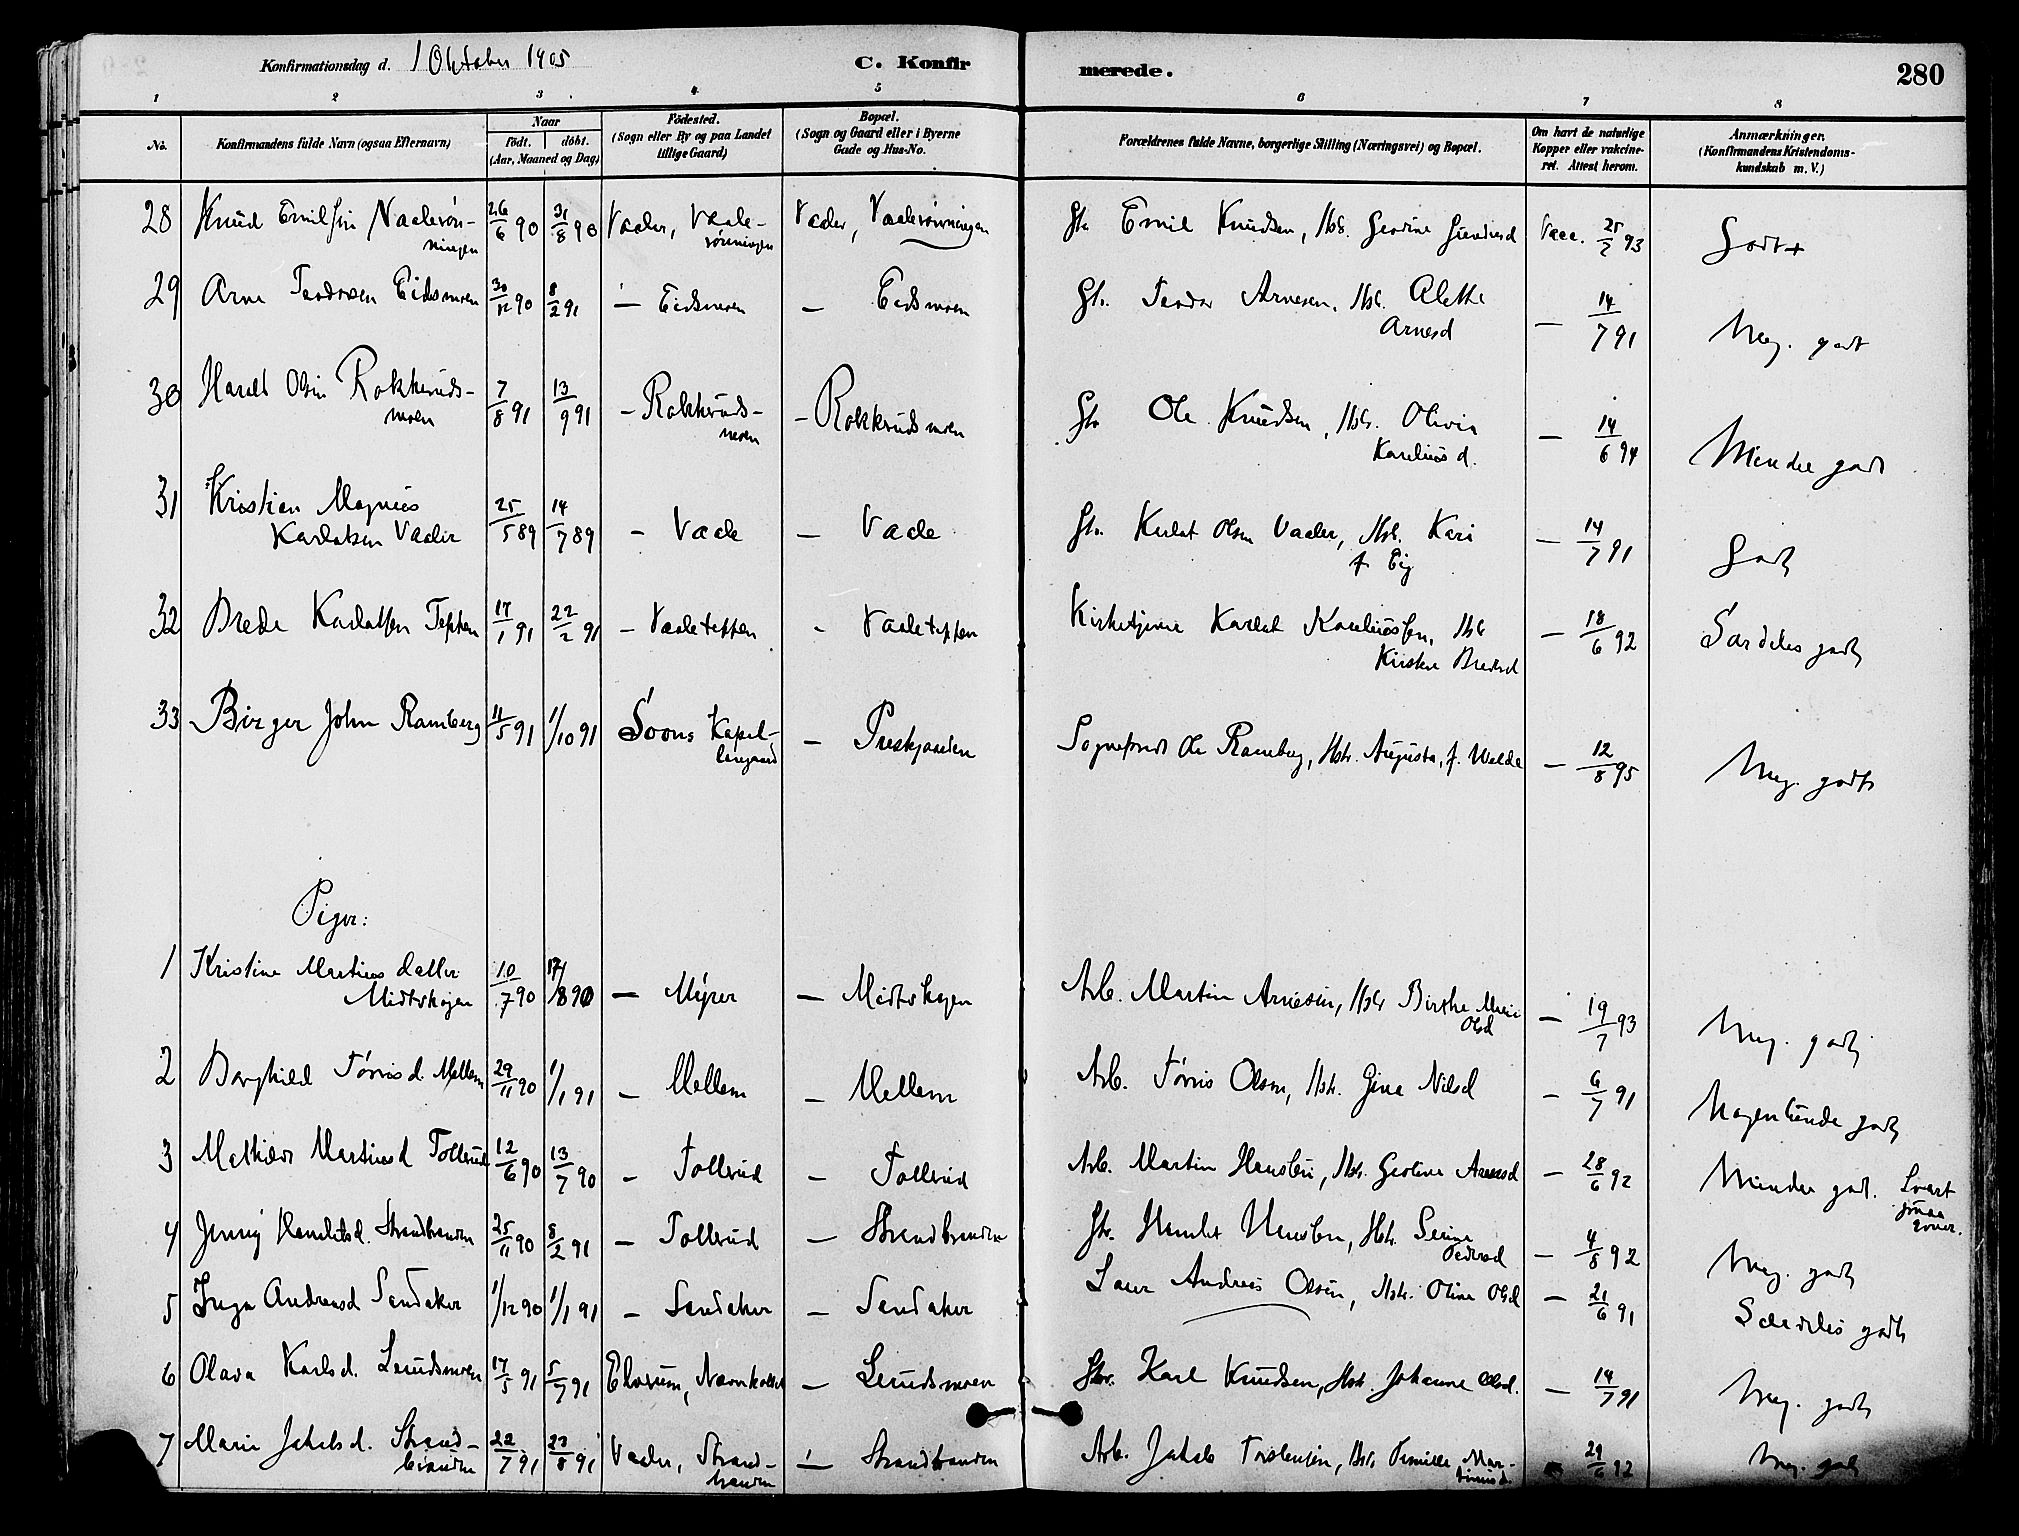 Konfirmationsdag d. 1 Oktober 1905
C. Konfirmerede.
280
1 2 3 4 5 6 7 8
No.
Konfirmandens fulde Navn (ogsaa Efternavn)
Naar
födt. döbt.
(Aar, Maaned og Dag)
Födested.
(Sogn eller By og paa Landet
tillige Gaard)
Bopæl.
(Sogn og Gaard eller i Byerne
Gade og Hus-No.
Forældrenes fulde Navne, borgerlige Stilling (Næringsvei) og Bopæl.
Om havt de naturlige
Kopper eller vakcine-
ret. Attest herom.
Anmærkninger.
(Konfirmandens Kristendoms-
kundskab m. V.)
28 Knud Emilsen 26/6 90 31/8 90 Vaaler, Vaale- Vaaler, Emil Knudsen, Hst. Vacc. 25/2 93 Godt
ningen rönningen
29 Arne Eidsmoen 30/12 90 8/2 91 — Eidsmoen — Eidsmoen Arnesen, Hst. Alethe — 14/7 91 Meg. godt
Arnesd
30 Harald Olsen Rokkeruds- 7/8 91 13/9 91 — Rokkeruds- — Rokkerudsmoen Ole Knudsen, Hst. Olivia — 14/6 94 Mindre godt
moen moen Kareliusd.
31 Kristian Magnus 25/5 89 14/7 89 — Vaale — Vaale Olsen Vaaler, Hst. Kari — 14/7 91 Godt
Vaaler f. Eig
32 Brede Teppen 17/1 91 22/2 91 — Vaaleteppen — Vaaleteppen Kirketjener Kareliussen, Hst — 18/6 92 Særdeles godt
Bredesd
33 Birger John Ramberg 11/5 91 1/10 91 Soons Kapel- — Sogneprest Ole Ramberg, Hst. Augusta, f. Welde — 12/8 95 Meg. godt
langaard
Piger:
1 Kristine Martinsdatter 10/7 90 17/8 90 — Myrer — Midtskogen Arb. Martin Arnesen, Hst. Birthe Marie — 19/7 93 Meg. godt
Midtskogen Olsd
2 Borghild Törrisd. Mellem 29/11 90 1/1 91 — Mellem — Mellem Arb. Törris Olsen, Hst. Gina Nilsd — 6/7 91 Nogenlunde godt
3 Mathilde Martinsd Tollerud 12/6 90 13/7 90 — Tollerud — Tollerud Arb. Martin Hansen, Hst. — 28/6 92 Mindre god.
4 Jenny Strandbraaten 25/11 90 8/2 91 — Tollerud — Strandbraaten Hst. Serine — 4/8 92 Meg. godt
Pedersd
5 Inga Andreasd Sandaker 1/12 90 1/1 91 — Sandaker — Sandaker Andreas Olsen, Hst. Oline Olsd — 21/6 91 Særdeles godt
6 Olava Karlsd. 17/5 91 5/7 91 Elverum, — Karl Knudsen, Hst. Johanne Olsd. — 14/7 91 Meg. godt
7 Marie Jakobsd. Strand- 22/7 91 23/8 91 Vaaler, Strand- — Strandbraaten Arb. Jakob Torstensen, Hst. Mar- 29/6 92 Meg. godt
braaten braaten tinusd.